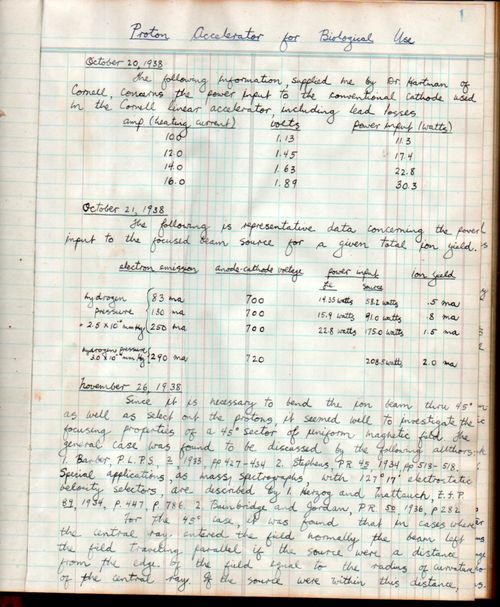 1
Proton Accelerator for Biological Use
October 20, 1938
The following information, supplied me by Dr. Hartman of
Cornell, concerns the power input to the conventional cathode used
in the Cornell linear accelerator, including lead losses
amp (heating current) volts power input (watts)
10.0 1.13 11.3
12.0 1.45 17.4
14.0 1.63 22.8
16.0 1.89 30.3
October 21, 1938
The following is representative data concerning the power
input to the focused beam source for a given total ion yield.
electron emission anode-cathode voltage power input Ion yield
fil source
hydrogen 83 ma 700 14.35 watts 58.2 watts .5 ma
pressure 130 ma 700 15.9 watts 91.0 watts .8 ma
250 ma 700 22.8 watts 175.0 watts 1.5 ma
hydrogen pressure
290 ma 720 208.5 watts 2.0 ma
November 26, 1938
Since it is necessary to bend the ion beam thru 45°
as well as select out the protons, it seemed well to investigate the
focusing properties of a 45° sector of uniform magnetic field. The
general case was found to be discussed by the following authors:
1. Barber, P.L.P.S. 2, 1933, pp 427-434 2. Stephens, PR 45, 1934, pp 513-518.
Special applications, as mass spectrographs, with 127° 17' electrostatic
velocity selectors, are described by 1. Herzog and Mattauch, Z.f.P.
89, 1934, p. 447, p. 786. 2. Bainbridge and Jordan, PR 50, 1936, p 282
For the 45° case, it was found that in cases where
the central ray entered the field normally the beam left
the field traveling parallel if the source were a distance
from the edge of the field equal to the radius of curvature
of the central ray. If the source were within this distance,